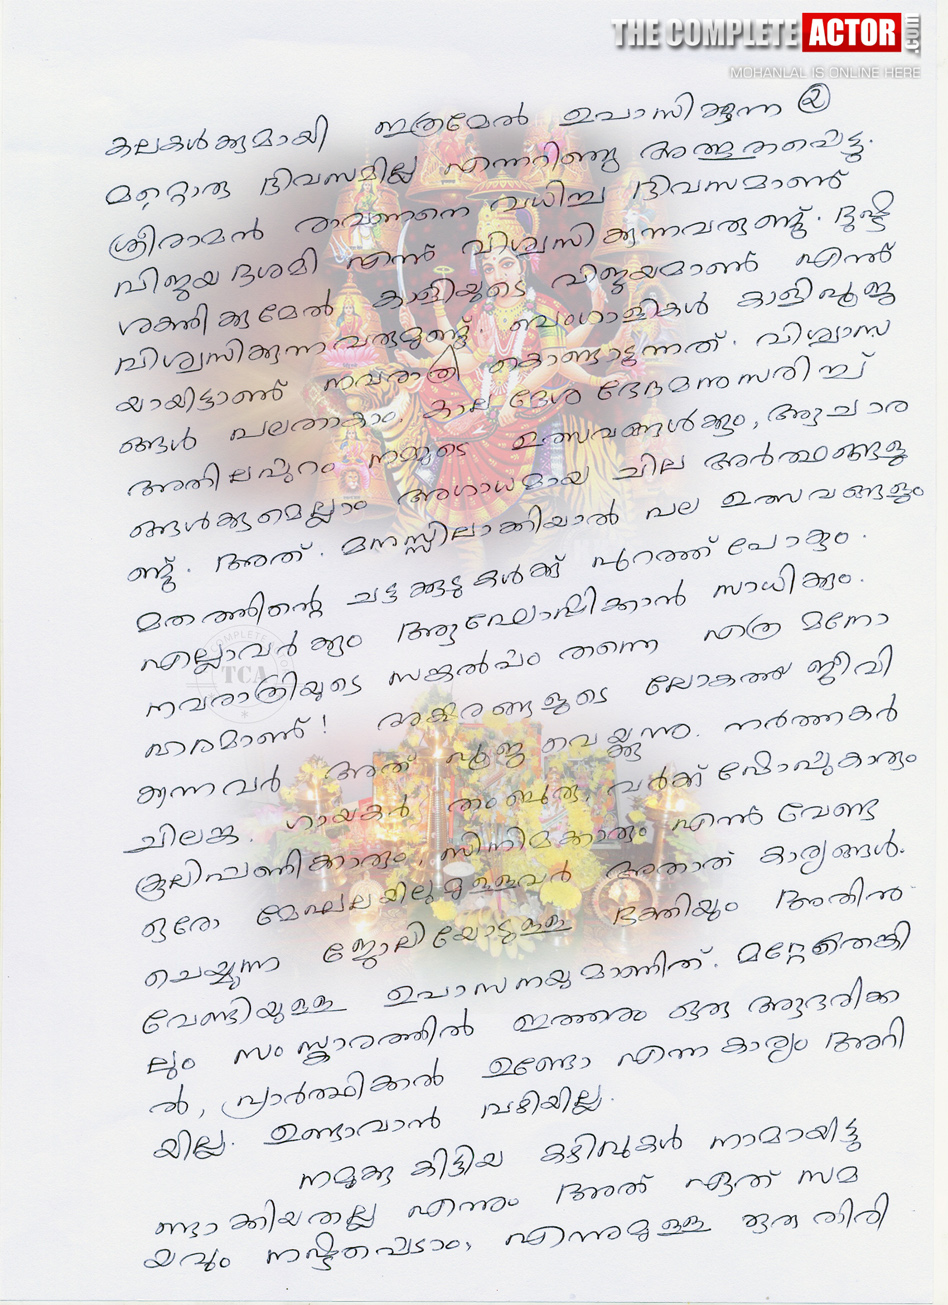 THE COMPLETE ACTOR.com
MOHANLAL IS ONLINE HERE
കലകൾക്കുമായി ഇത്രമേൽ ഉപാസിക്കുന്ന ②
മറ്റൊരു ദിവസമില്ല എന്നറിഞ്ഞു അത്ഭുതപ്പെട്ടു.
ശ്രീരാമൻ രാവണനെ വധിച്ച ദിവസമാണ്
വിജയദശമി എന്ന് വിശ്വസിക്കുന്നവരുണ്ട്. ദുഷ്ട
ശക്തിക്കുമേൽ കാളിയുടെ വിജയമാണ് എന്ന്
വിശ്വസിക്കുന്നവരുമുണ്ട്. ബംഗാളികൾ കാളിപൂജ
യായിട്ടാണ് നവരാത്രി കൊണ്ടാടുന്നത്. വിശ്വാസ
ങ്ങൾ പലതാകാം. കാല ദേശ ഭേദമനുസരിച്ച്
അതിലപ്പുറം നമ്മുടെ ഉത്സവങ്ങൾക്കും, ആചാര
ങ്ങൾക്കുമെല്ലാം അഗാധമായ ചില അർത്ഥങ്ങളു
ണ്ട്. അത്. മനസ്സിലാക്കിയാൽ പല ഉത്സവങ്ങളും
മതത്തിന്റെ ചട്ടക്കൂടുകൾക്ക് പുറത്ത് പോകും.
എല്ലാവർക്കും ആഘോഷിക്കാൻ സാധിക്കും.
നവരാത്രിയുടെ സങ്കൽപ്പം തന്നെ എത്ര മനോ
ഹരമാണ്! അക്ഷരങ്ങളുടെ ലോകത്ത് ജീവി
ക്കുന്നവർ അത് പൂജ വെയ്ക്കുന്നു. നർത്തകർ
ചിലങ്ക. ഗായകർ തംബുരു, വർക്ക് ഷോപ്പുകാരും
കൂലിപ്പണിക്കാരും, സിനിമക്കാരും എന്ന് വേണ്ട
ഒരോ മേഘലയിലുമുള്ളവർ അതാത് കാര്യങ്ങൾ.
ചെയ്യുന്ന ജോലിയോടുള്ള ഭക്തിയും അതിനു
വേണ്ടിയുള്ള ഉപാസനയുമാണിത്. മറ്റേതെങ്കി
ലും സംസ്കാരത്തിൽ ഇത്തരം ഒരു ആദരിക്ക
ൽ, പ്രാർത്ഥിക്കൽ ഉണ്ടോ എന്ന കാര്യം അറി
യില്ല. ഉണ്ടാവാൻ വഴിയില്ല.
നമുക്കു കിട്ടിയ കഴിവുകൾ നാമായിട്ടു
ണ്ടാക്കിയതല്ല എന്നും അത് ഏത് സമ
യവും നഷ്ടപ്പെടാം, എന്നുമുള്ള ഒരു തിരി
COMPLETE
TCA